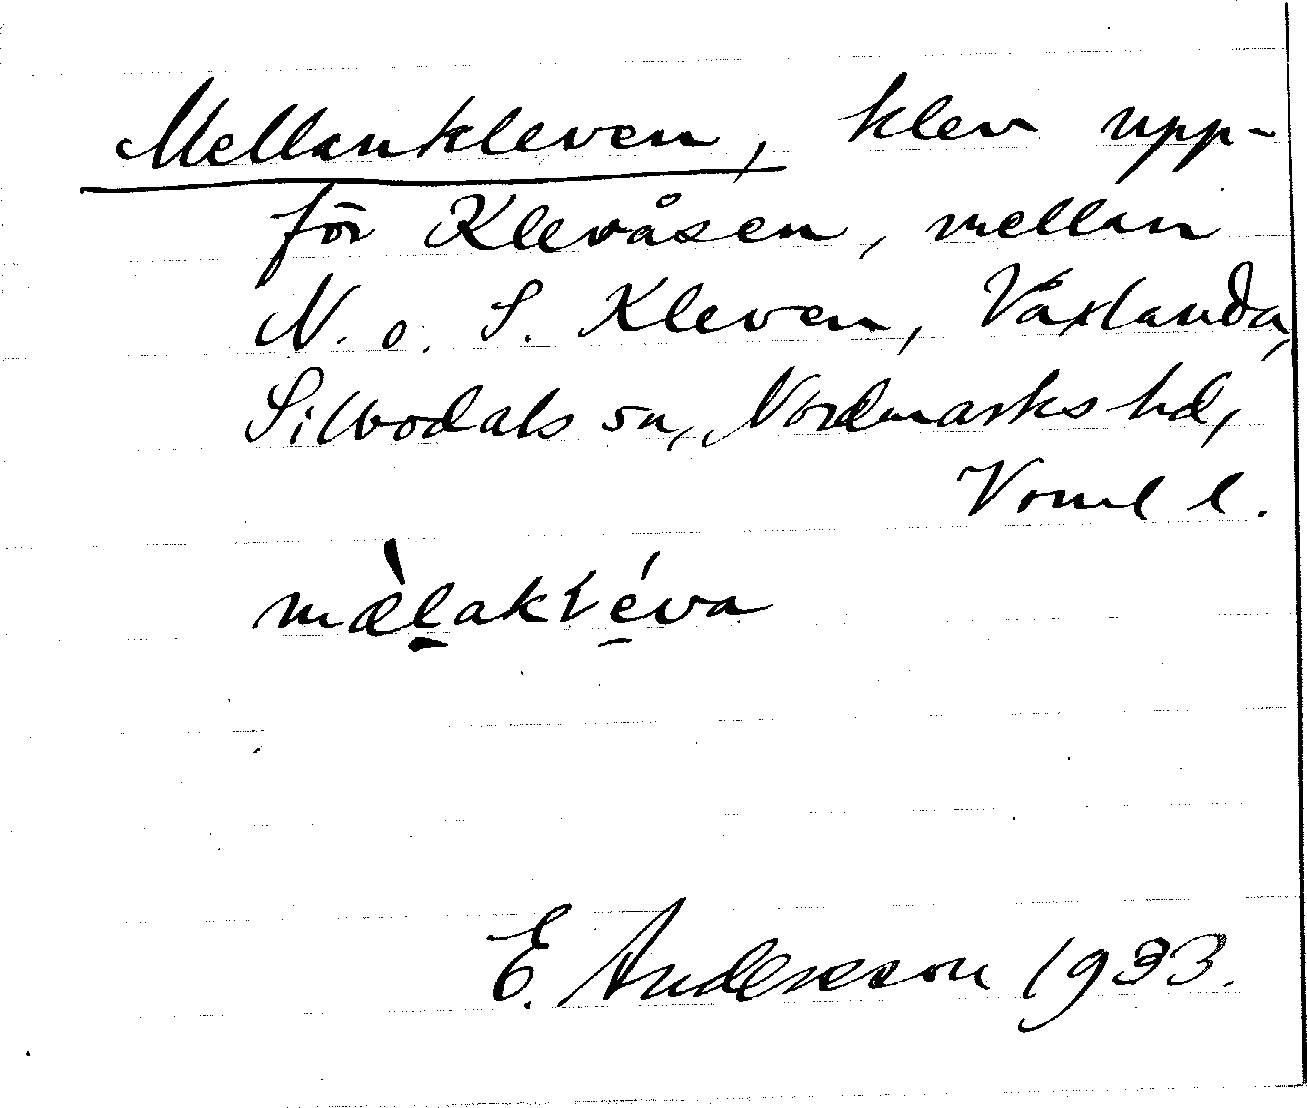 Mellankleven, klev upp-
för Klevåsen, mellan
N. o. S. Kleven, Växlanda,
Silbodals sn, Nordmarks hd,
Vrml l.
mæ̀l̲akɫé̲va
E. Andersson 1933.